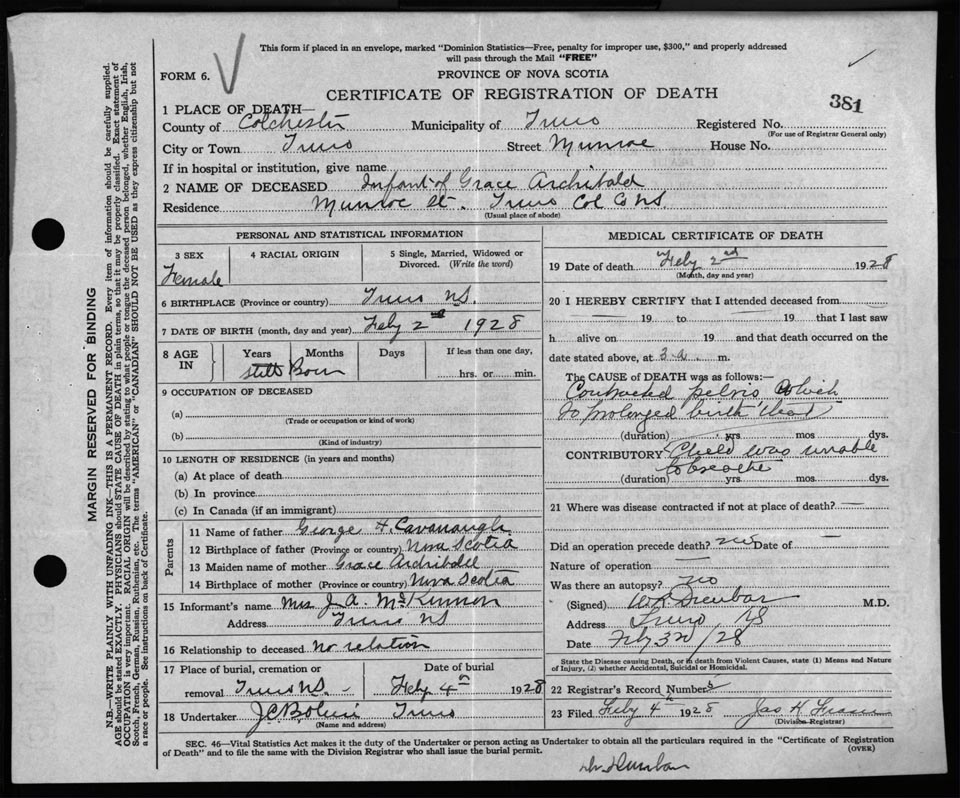 This form if placed in an envelope, marked "Dominion Statistics—Free, penalty for improper use, $300," and properly addressed
will pass through the Mail "FREE"
FORM 6.
PROVINCE OF NOVA SCOTIA
CERTIFICATE OF REGISTRATION OF DEATH
381
1 PLACE OF DEATH—
County of Colchester Municipality of Truro Registered No.
(For use of Registrar General only)
City or Town Truro Street Munroe House No.
If in hospital or institution, give name
2 NAME OF DECEASED Infant of Grace Archibald
Residence Munroe St. Truro Col Co NS
(Usual place of abode)
PERSONAL AND STATISTICAL INFORMATION
3 SEX 4 RACIAL ORIGIN 5 Single, Married, Widowed or
Divorced. (Write the word)
Female
6 BIRTHPLACE (Province or country) Truro NS.
7 DATE OF BIRTH (month, day and year) Feby 2nd 1928
8 AGE IN Years Months Days If less than one day,
Still Born hrs. or min.
9 OCCUPATION OF DECEASED
(a)
(Trade or occupation or kind of work)
(b)
(Kind of industry)
10 LENGTH OF RESIDENCE (in years and months)
(a) At place of death
(b) In province
(c) In Canada (if an immigrant)
Parents
11 Name of father George H. Cavanaugh
12 Birthplace of father (Province or country) Nova Scotia
13 Maiden name of mother Grace Archibald
14 Birthplace of mother (Province or country) Nova Scotia
15 Informant's name Mrs J. A. McKinnon
Address Truro NS
16 Relationship to deceased No relation
17 Place of burial, cremation or Date of burial
removal Truro NS. Feby 4th 1928
18 Undertaker J.C.B. Truro
(Name and address)
MEDICAL CERTIFICATE OF DEATH
19 Date of death Feby 2nd 1928
(Month, day and year)
20 I HEREBY CERTIFY that I attended deceased from
19 to 19 that I last saw
h alive on 19 and that death occurred on the
date stated above, at 3 a. m.
The CAUSE of DEATH was as follows:—
Contracted pelvis which
to prolonged birth
(duration) yrs. mos dys.
CONTRIBUTORY Child was unable
to breathe
(duration) yrs. mos dys.
21 Where was disease contracted if not at place of death? —
Did an operation precede death? no Date of —
Nature of operation —
Was there an autopsy? no
(Signed) M.D.
Address Truro NS
Date Feby 3rd /28
State the Disease causing Death, or in death from Violent Causes, state (1) Means and Nature
of Injury, (2) whether Accidental, Suicidal or Homicidal.
22 Registrar's Record Number
23 Filed Feby 4th 1928 Jas H
(Division Registrar)
SEC. 46—Vital Statistics Act makes it the duty of the Undertaker or person acting as Undertaker to obtain all the particulars required in the "Certificate of Registration
of Death" and to file the same with the Division Registrar who shall issue the burial permit.
(OVER)
MARGIN RESERVED FOR BINDING
N.B.—WRITE PLAINLY WITH UNFADING INK—THIS IS A PERMANENT RECORD. Every item of information should be carefully supplied.
AGE should be stated EXACTLY. PHYSICIANS should STATE CAUSE OF DEATH in plain terms, so that it may be properly classified. Exact statement of
OCCUPATION is very important. RACIAL ORIGIN will be described by stating to what people or tongue the deceased person belonged, whether English, Irish,
Scotch, French, German, Russian, Ruthenian, etc. The terms "AMERICAN" or "CANADIAN" SHOULD NOT BE USED as they express citizenship but not
a race or people. See instructions on back of Certificate.